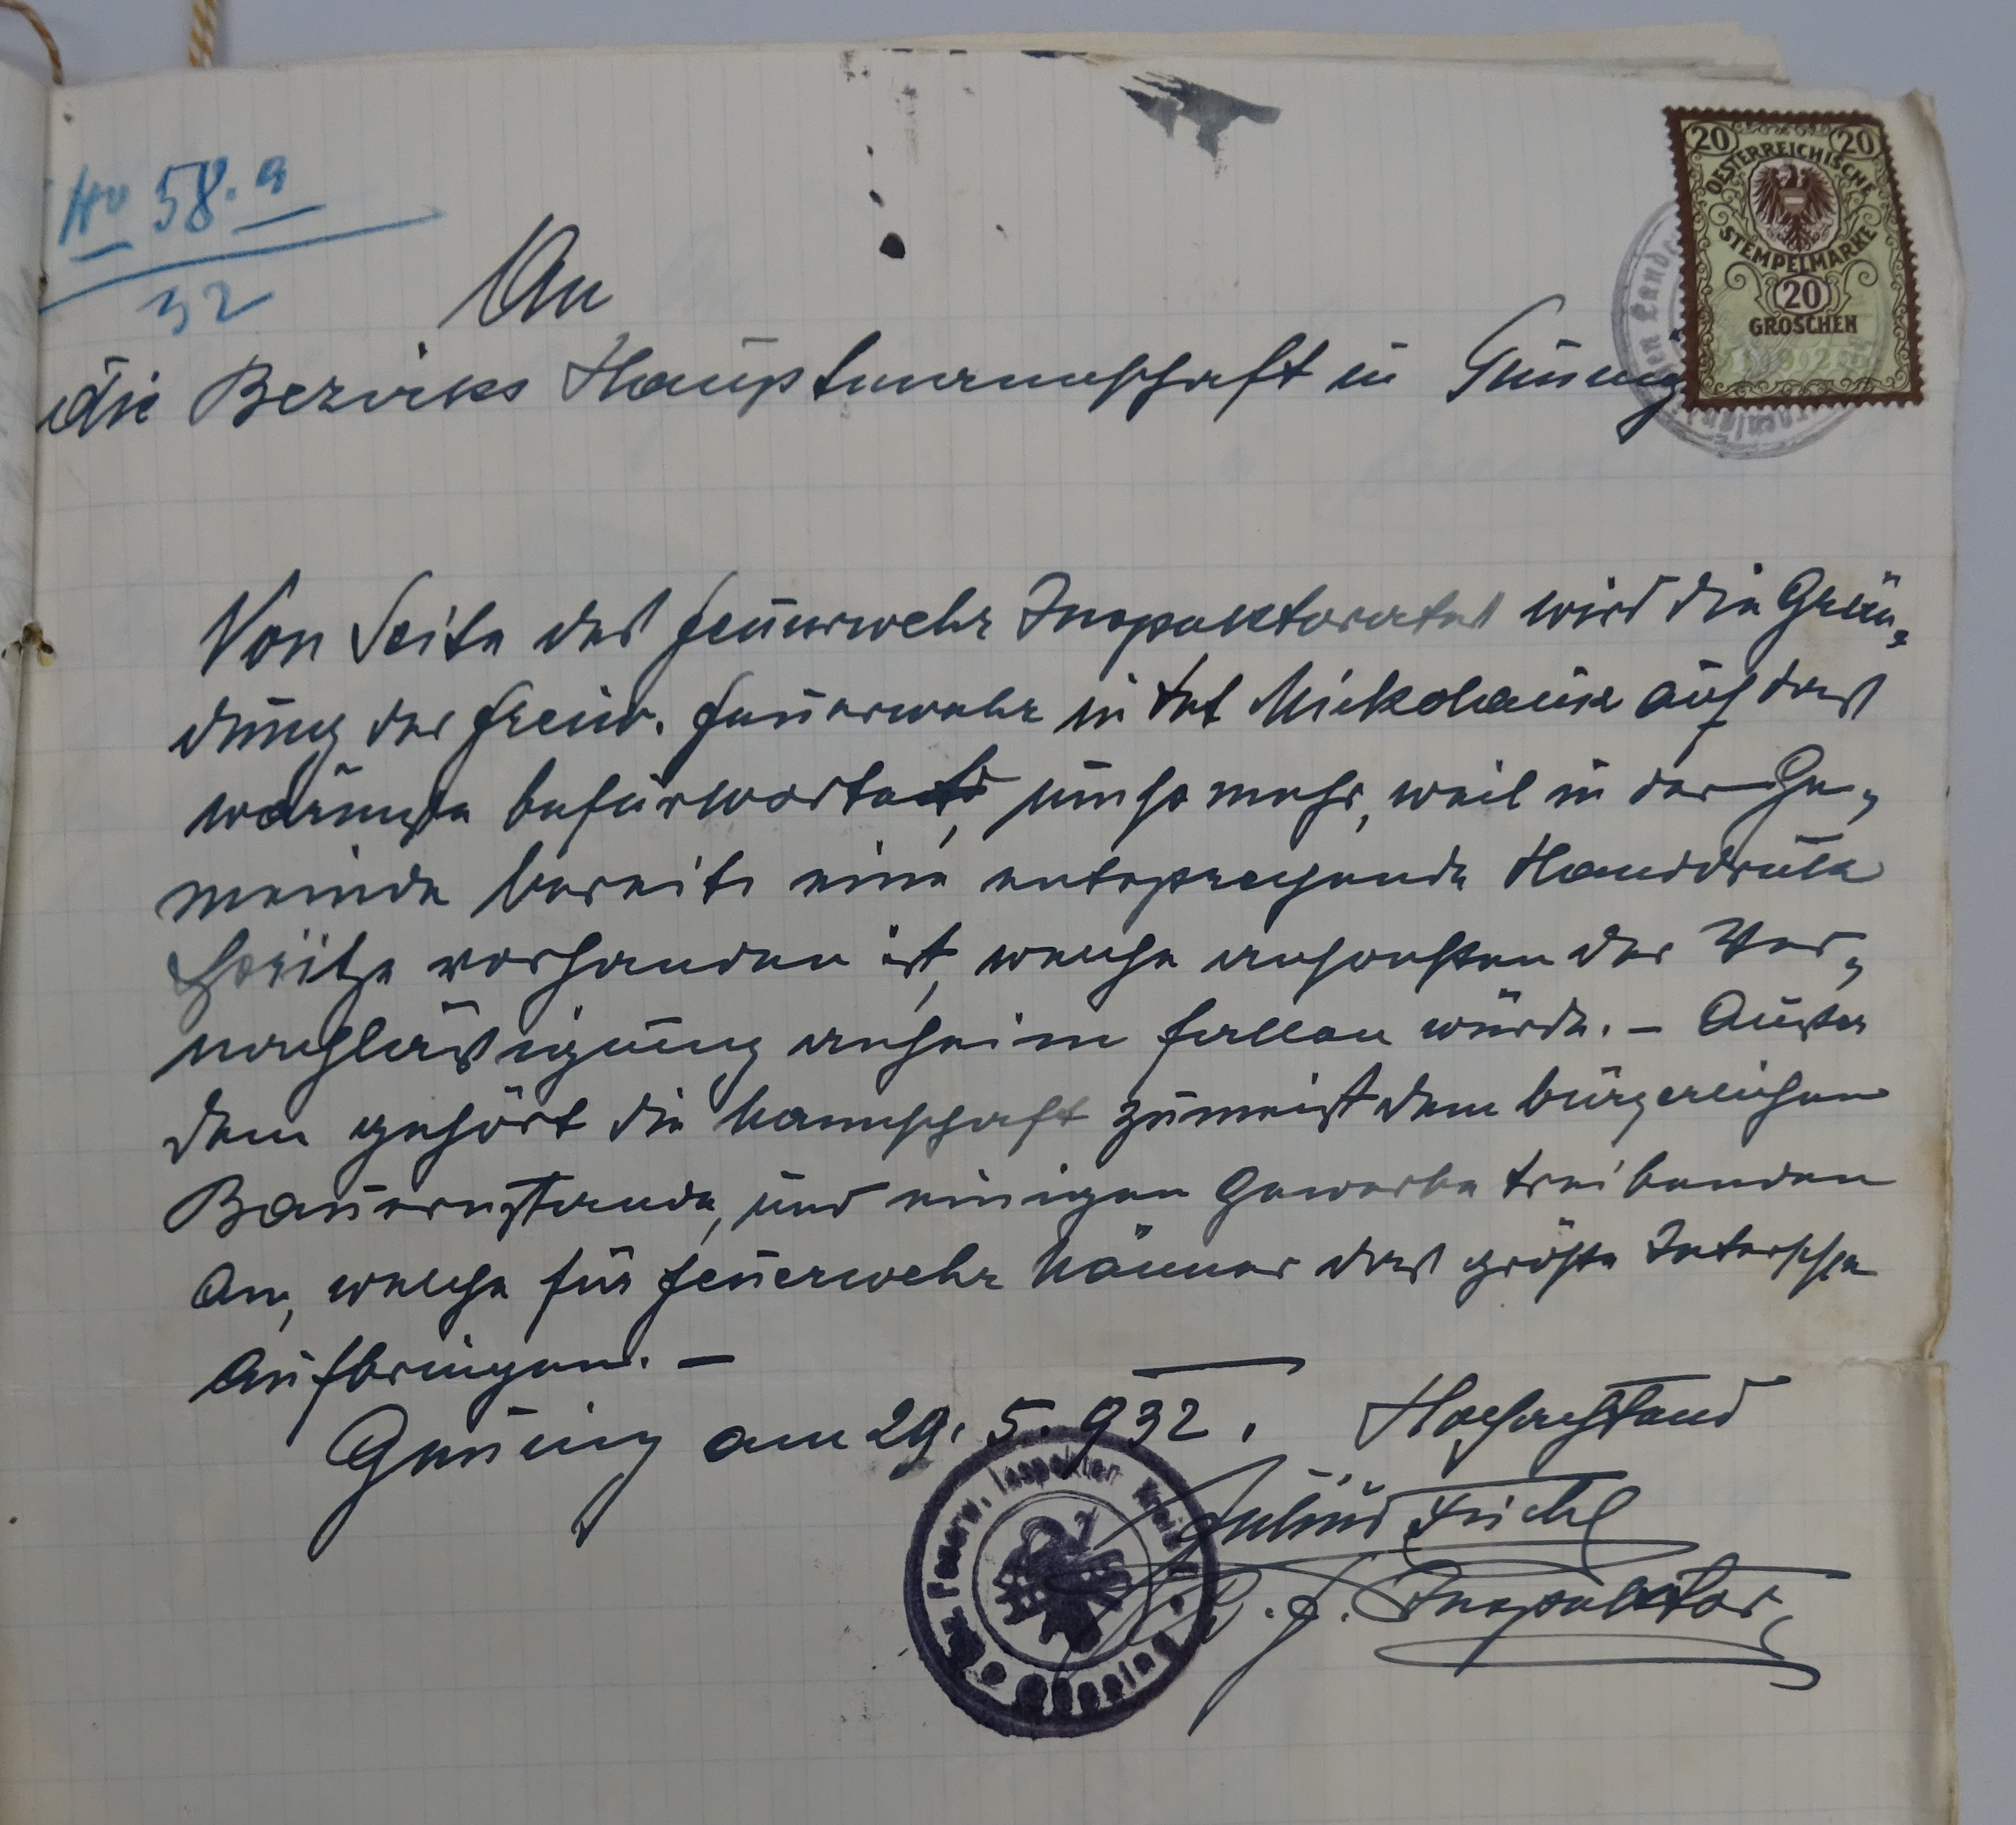 No 58.a
32
20 20
OESTERREICHISCHE
STEMPELMARKE
20
GROSCHEN
An
die Bezirks Hauptmannschaft in Güssing
Von Seite des Feuerwehr Inspektorates wird die Grün-
dung der freiw. Feuerwehr in Dt Mückohaus auf das
wärmste befürwortet, umso mehr, weil in der Ge-
meinde bereits eine entsprechende Handdruck
Spritze vorhanden ist, welche ansonsten der Ver-
nachlässigung anheim fallen würde. - Ausser
dem gehört die Mannschaft zumeist dem bürgerlichen
Bauernstande, und einigen Gewerbe treibenden
An, welche für Feuerwehr Männer das größte Interesse
Aufbringen. -
Güssing am 29. 5. 932. Hochachtend
Julius
B. F. Inspektor
Feuerw. Inspektion Kreis
Güssing